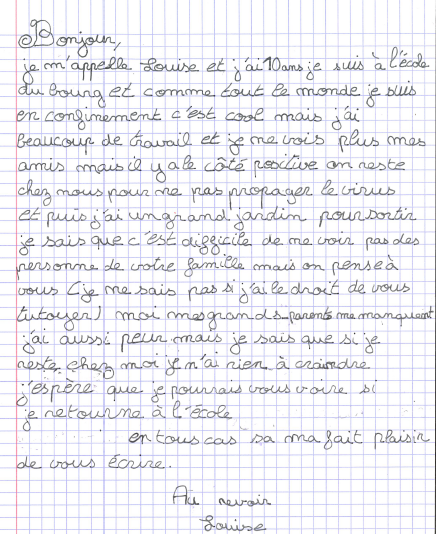 Bonjour,
je m'appelle Louise et j'ai 10 ans je suis à l'école
du bourg et comme tout le monde je suis
en confinement c'est cool mais j'ai
beaucoup de travail et je ne vois plus mes
amis mais il y a le côté positive on reste
chez nous pour ne pas propager le virus
et puis j'ai un grand jardin pour sortir
je sais que c'est difficile de ne voir pas des
personne de votre famille mais on pense à
vous (je ne sais pas si j'ai le droit de vous
tutoyer) moi mes grands-parents me manquent
j'ai aussi peur mais je sais que si je
reste chez moi je n'ai rien à craindre
j'espère que je pourrais vous voire si
je retourne à l'école
en tous cas sa ma fait plaisir
de vous écrire.
Au revoir
Louise